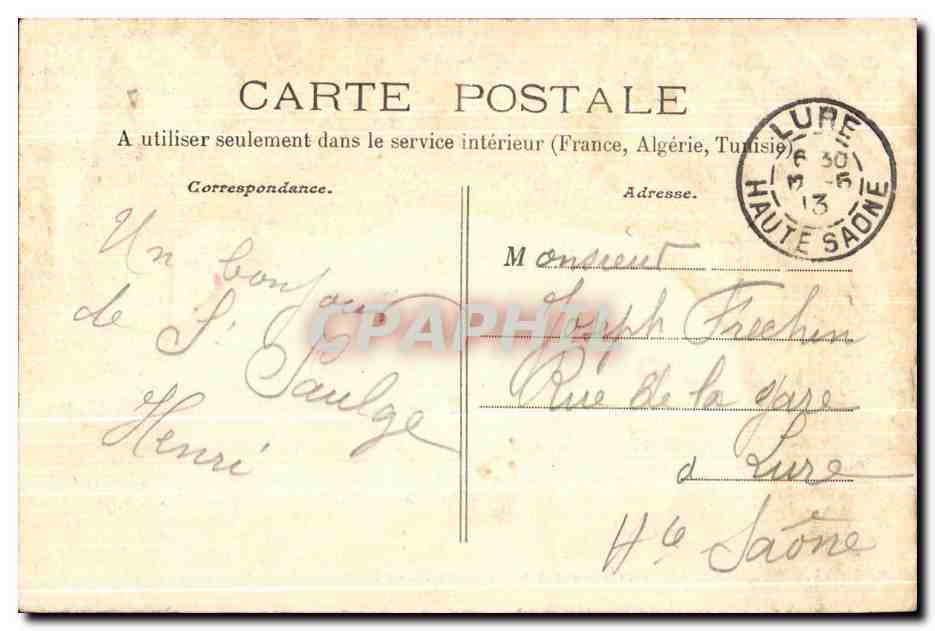 CARTE POSTALE
A utiliser seulement dans le service intérieur (France, Algérie, Tunisie)
LURE
6 30
3 -5
13
HAUTE SAÔNE
Correspondance.
Adresse.
Un bonjour
de St
Saulge
Henri
Monsieur
Joseph Frechin
Rue de la gare
a Lure
Hte Saône
CPAPHIL